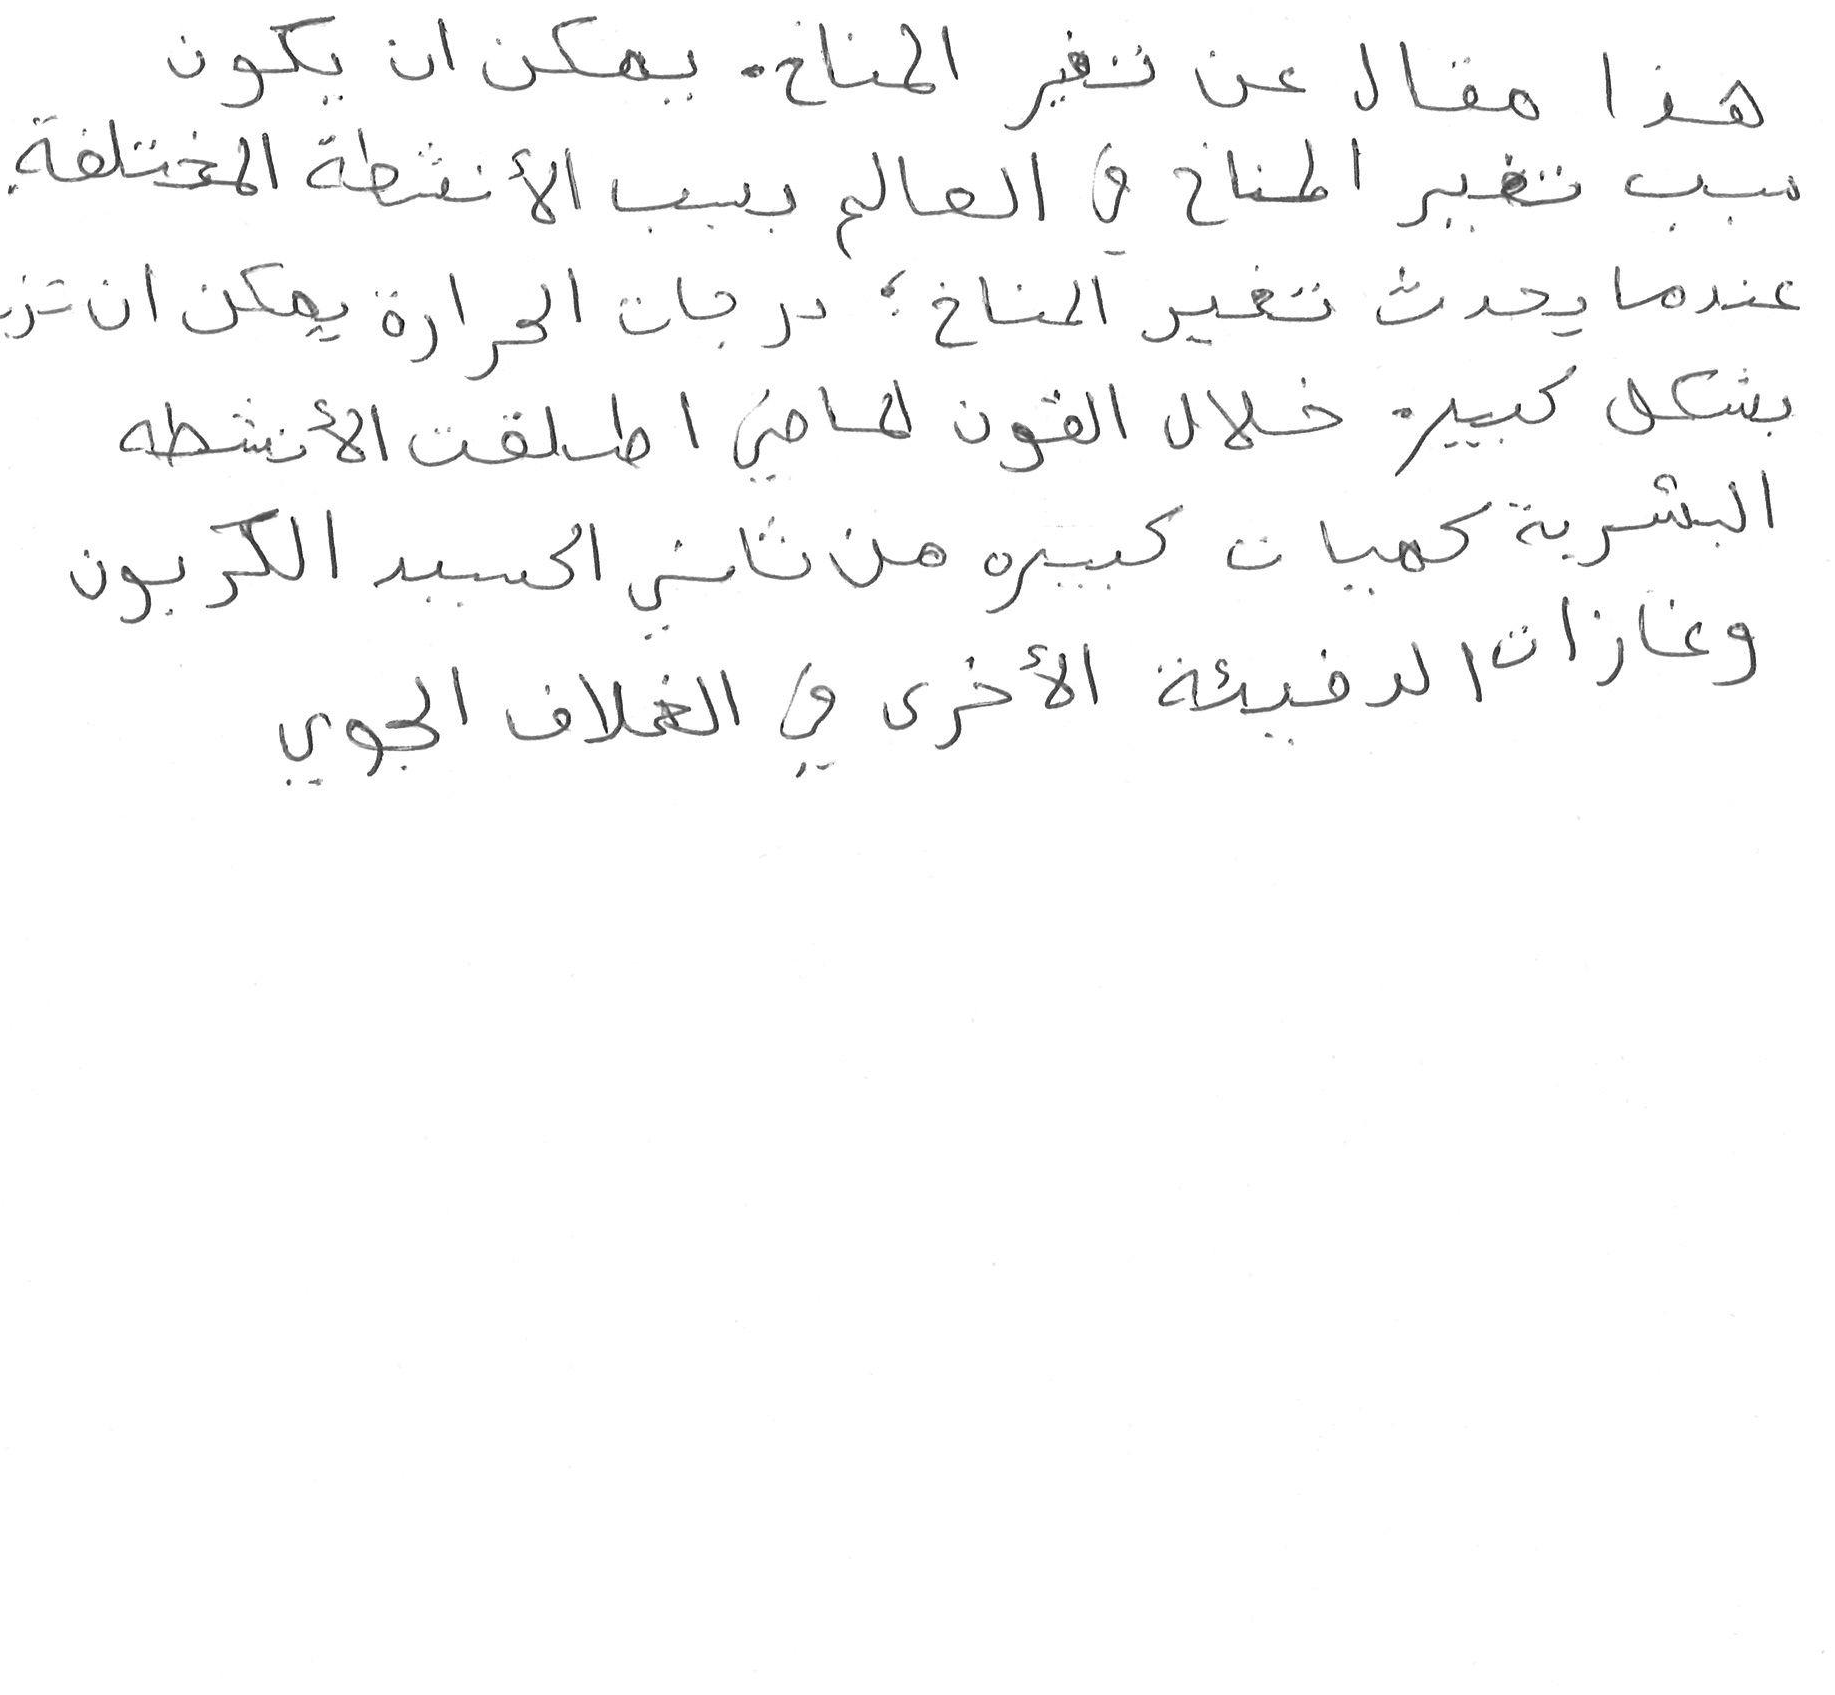 هذا مقال عن تغير المناخ. يمكن ان يكون
سبب تغير المناخ في العالم بسبب الأنشطة المختلفة.
عندما يحدث تغير المناخ؛ درجات الحرارة يمكن ان
بشكل كبير. خلال القرن الماضي اطلقت الأنشطه
البشرية كميات كبيره من ثاني اكسيد الكربون
وغازات الدفيئة الأخرى في الغلاف الجوي